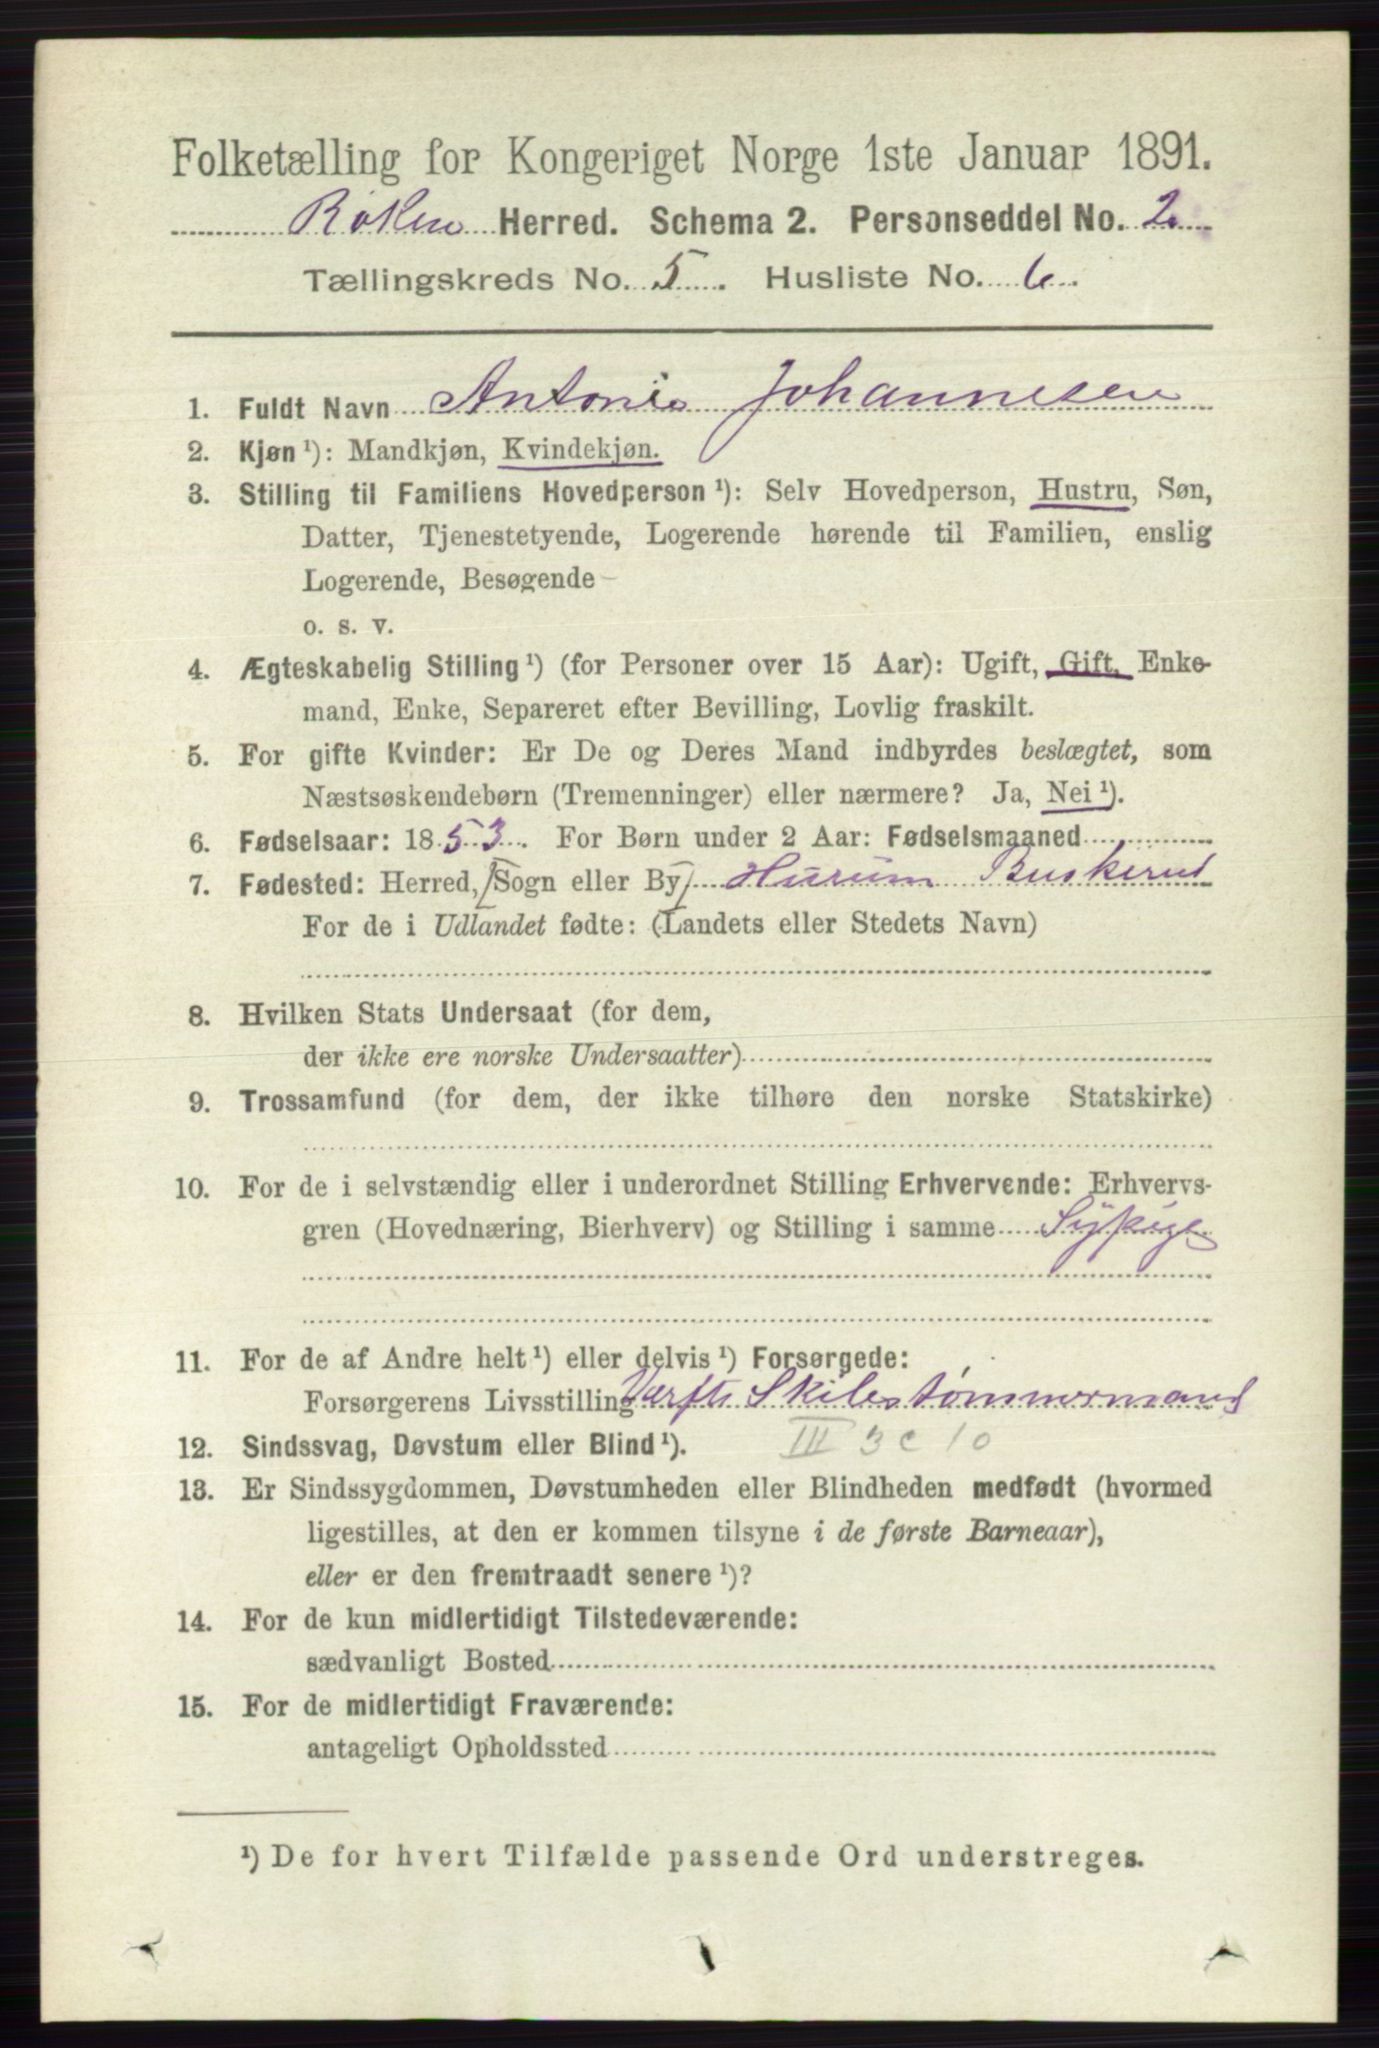 Folketælling for Kongeriget Norge 1ste Januar 1891.
Røken Herred. Schema 2. Personseddel No. 2
Tællingskreds No. 5. Husliste No. 6.
1. Fuldt Navn Antonie Johannesen
2. Kjøn ¹): Mandkjøn, Kvindekjøn.
3. Stilling til Familiens Hovedperson ¹): Selv Hovedperson, Hustru, Søn,
Datter, Tjenestetyende, Logerende hørende til Familien, enslig
Logerende, Besøgende
o. s. v.
4. Ægteskabelig Stilling ¹) (for Personer over 15 Aar): Ugift, Gift, Enke-
mand, Enke, Separeret efter Bevilling, Lovlig fraskilt.
5. For gifte Kvinder: Er De og Deres Mand indbyrdes beslægtet, som
Næstsøskendebørn (Tremenninger) eller nærmere? Ja, Nei ¹).
6. Fødselsaar: 1853. For Børn under 2 Aar: Fødselsmaaned
7. Fødested: Herred, [Sogn eller By] Hurum Buskerud
For de i Udlandet fødte: (Landets eller Stedets Navn)
8. Hvilken Stats Undersaat (for dem,
der ikke ere norske Undersaatter)
9. Trossamfund (for dem, der ikke tilhøre den norske Statskirke)
10. For de i selvstændig eller i underordnet Stilling Erhvervende: Erhvervs-
gren (Hovednæring, Bierhverv) og Stilling i samme Sypige
11. For de af Andre helt ¹) eller delvis ¹) Forsørgede:
Forsørgerens Livsstilling Værfts Skibstømmermand
12. Sindssvag, Døvstum eller Blind ¹). III 3 c 10
13. Er Sindssygdommen, Døvstumheden eller Blindheden medfødt (hvormed
ligestilles, at den er kommen tilsyne i de første Barneaar),
eller er den fremtraadt senere ¹)?
14. For de kun midlertidigt Tilstedeværende:
sædvanligt Bosted
15. For de midlertidigt Fraværende:
antageligt Opholdssted
¹) De for hvert Tilfælde passende Ord understreges.